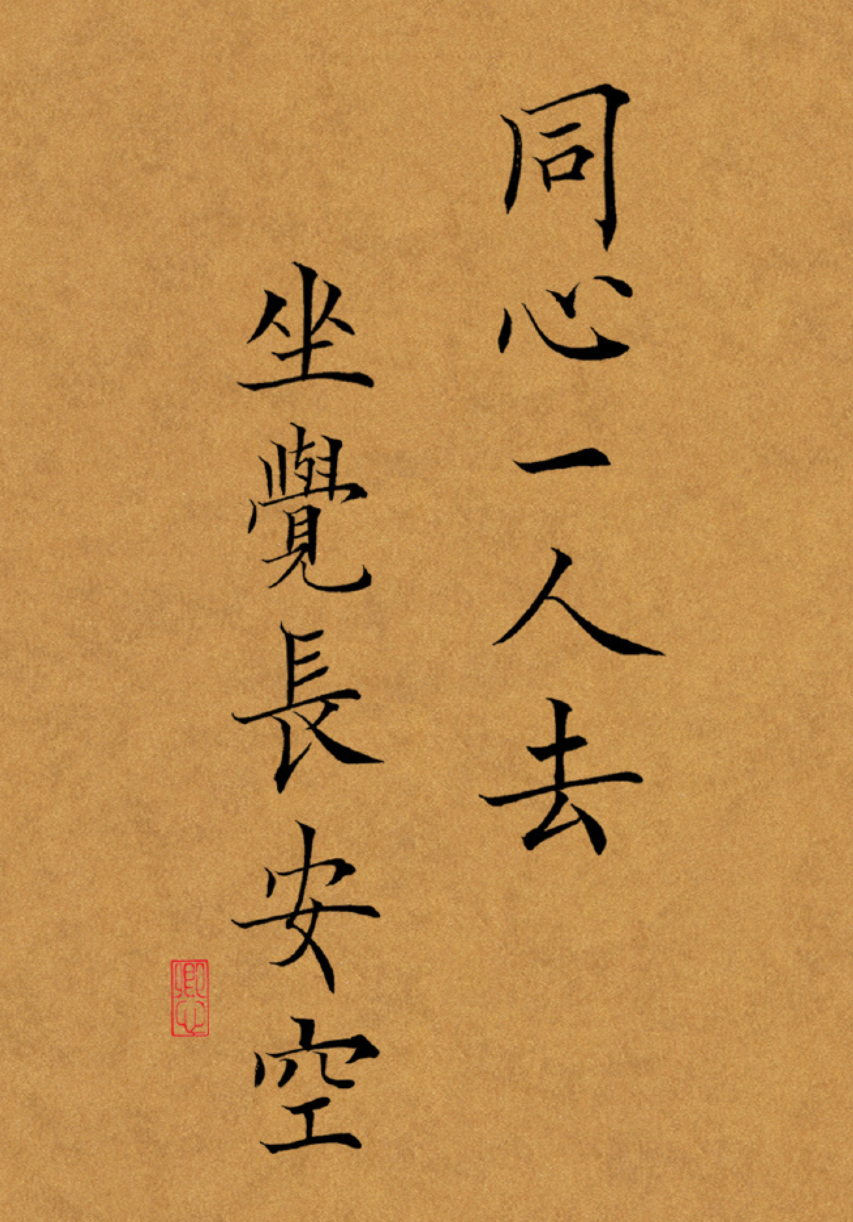 同心一人去
坐覺長安空